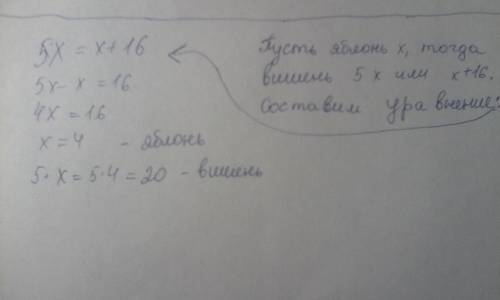 Пусть яблонь x, тогда
вишень 5x или x+16.
Составим уравнение:
5x = x+16
5x - x = 16
4x = 16
x = 4 - яблонь
5·x = 5·4 = 20 - вишень